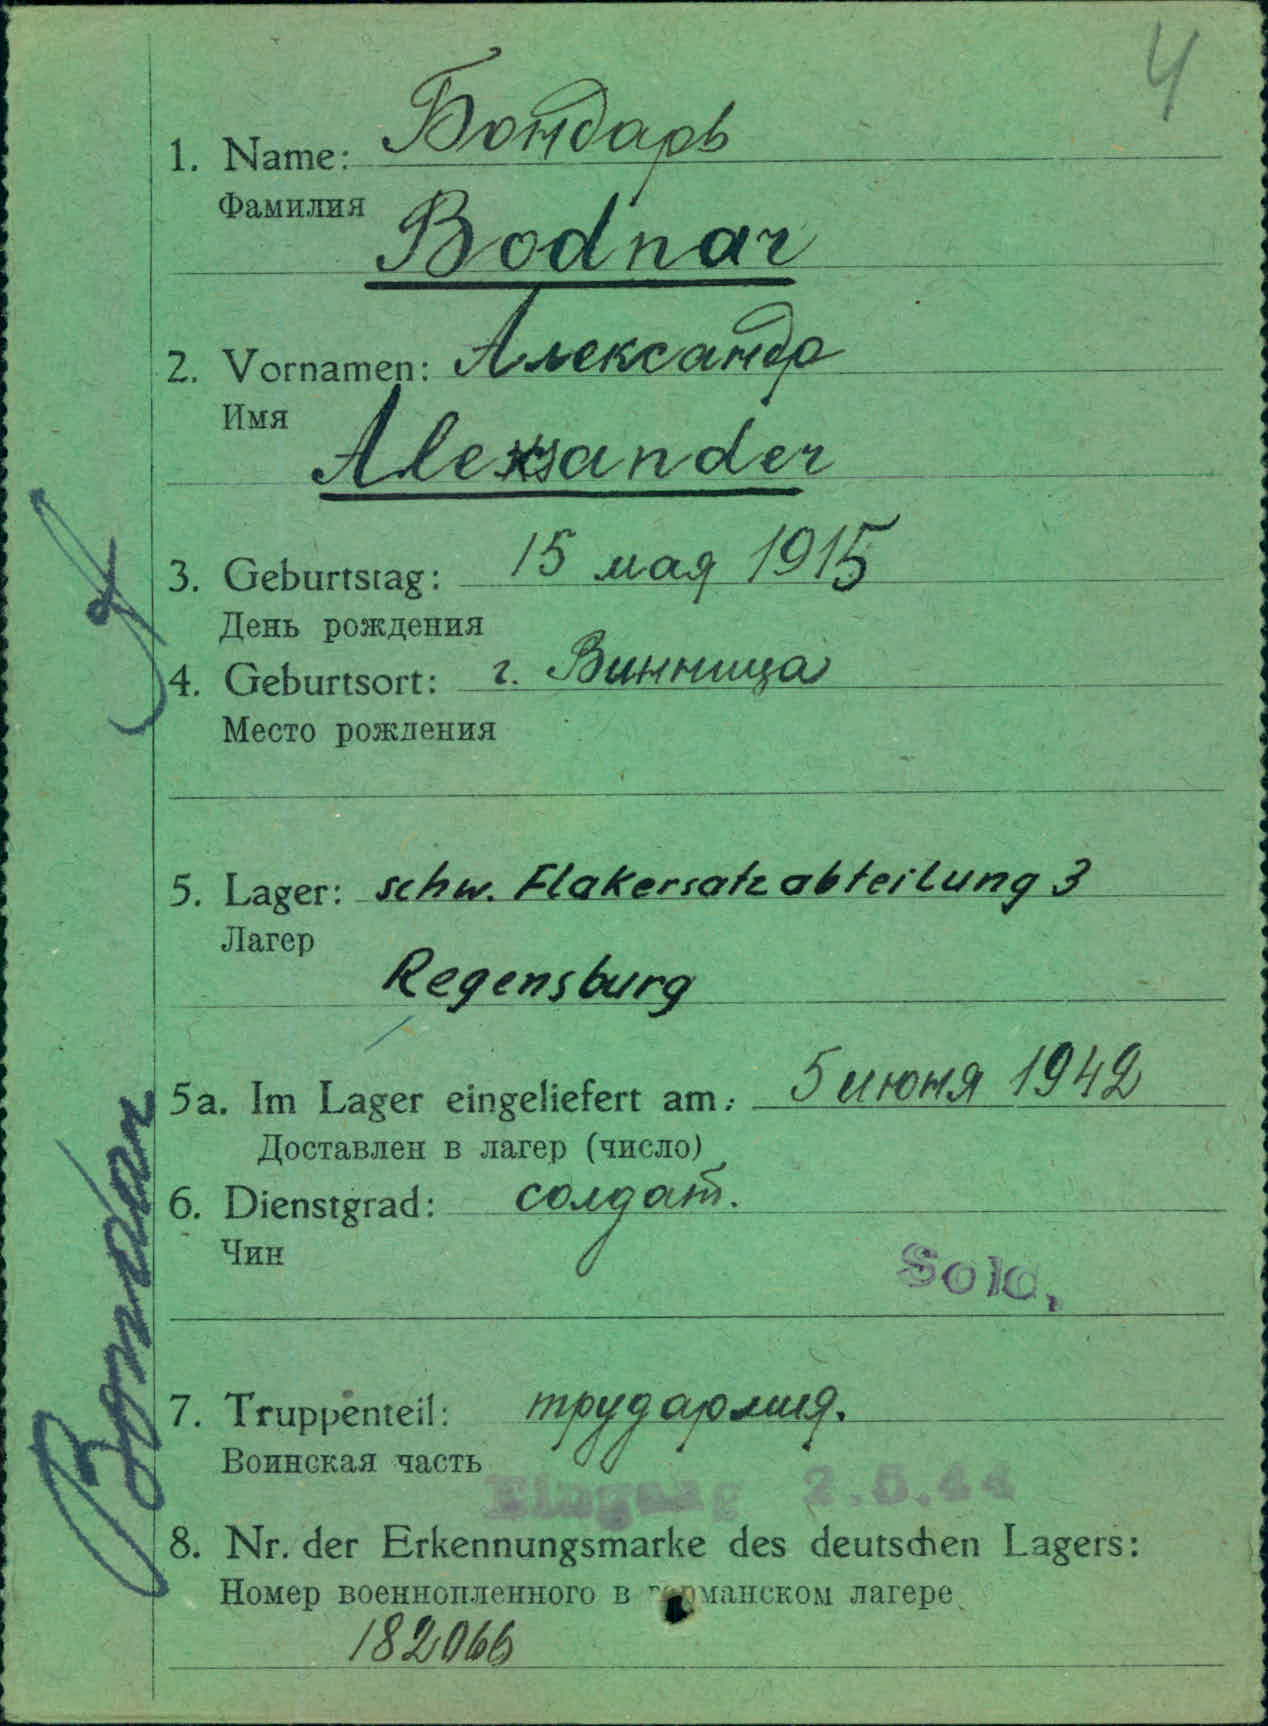 4
1. Name: Бондарь
Фамилия
Bodnar
2. Vornamen: Александр
Имя
Alexander
3. Geburtstag: 15 мая 1915
День рождения
4. Geburtsort: г. Винница
Место рождения
5. Lager: schw. Flakersatzabteilung 3
Лагер
Regensburg
5a. Im Lager eingeliefert am: 5 июня 1942
Доставлен в лагер (число)
6. Dienstgrad: солдат.
Чин
Sold.
7. Truppenteil: трудармия.
Воинская часть
Eingang 2.5.44
8. Nr. der Erkennungsmarke des deutschen Lagers:
Номер военнопленного в германском лагере
182066